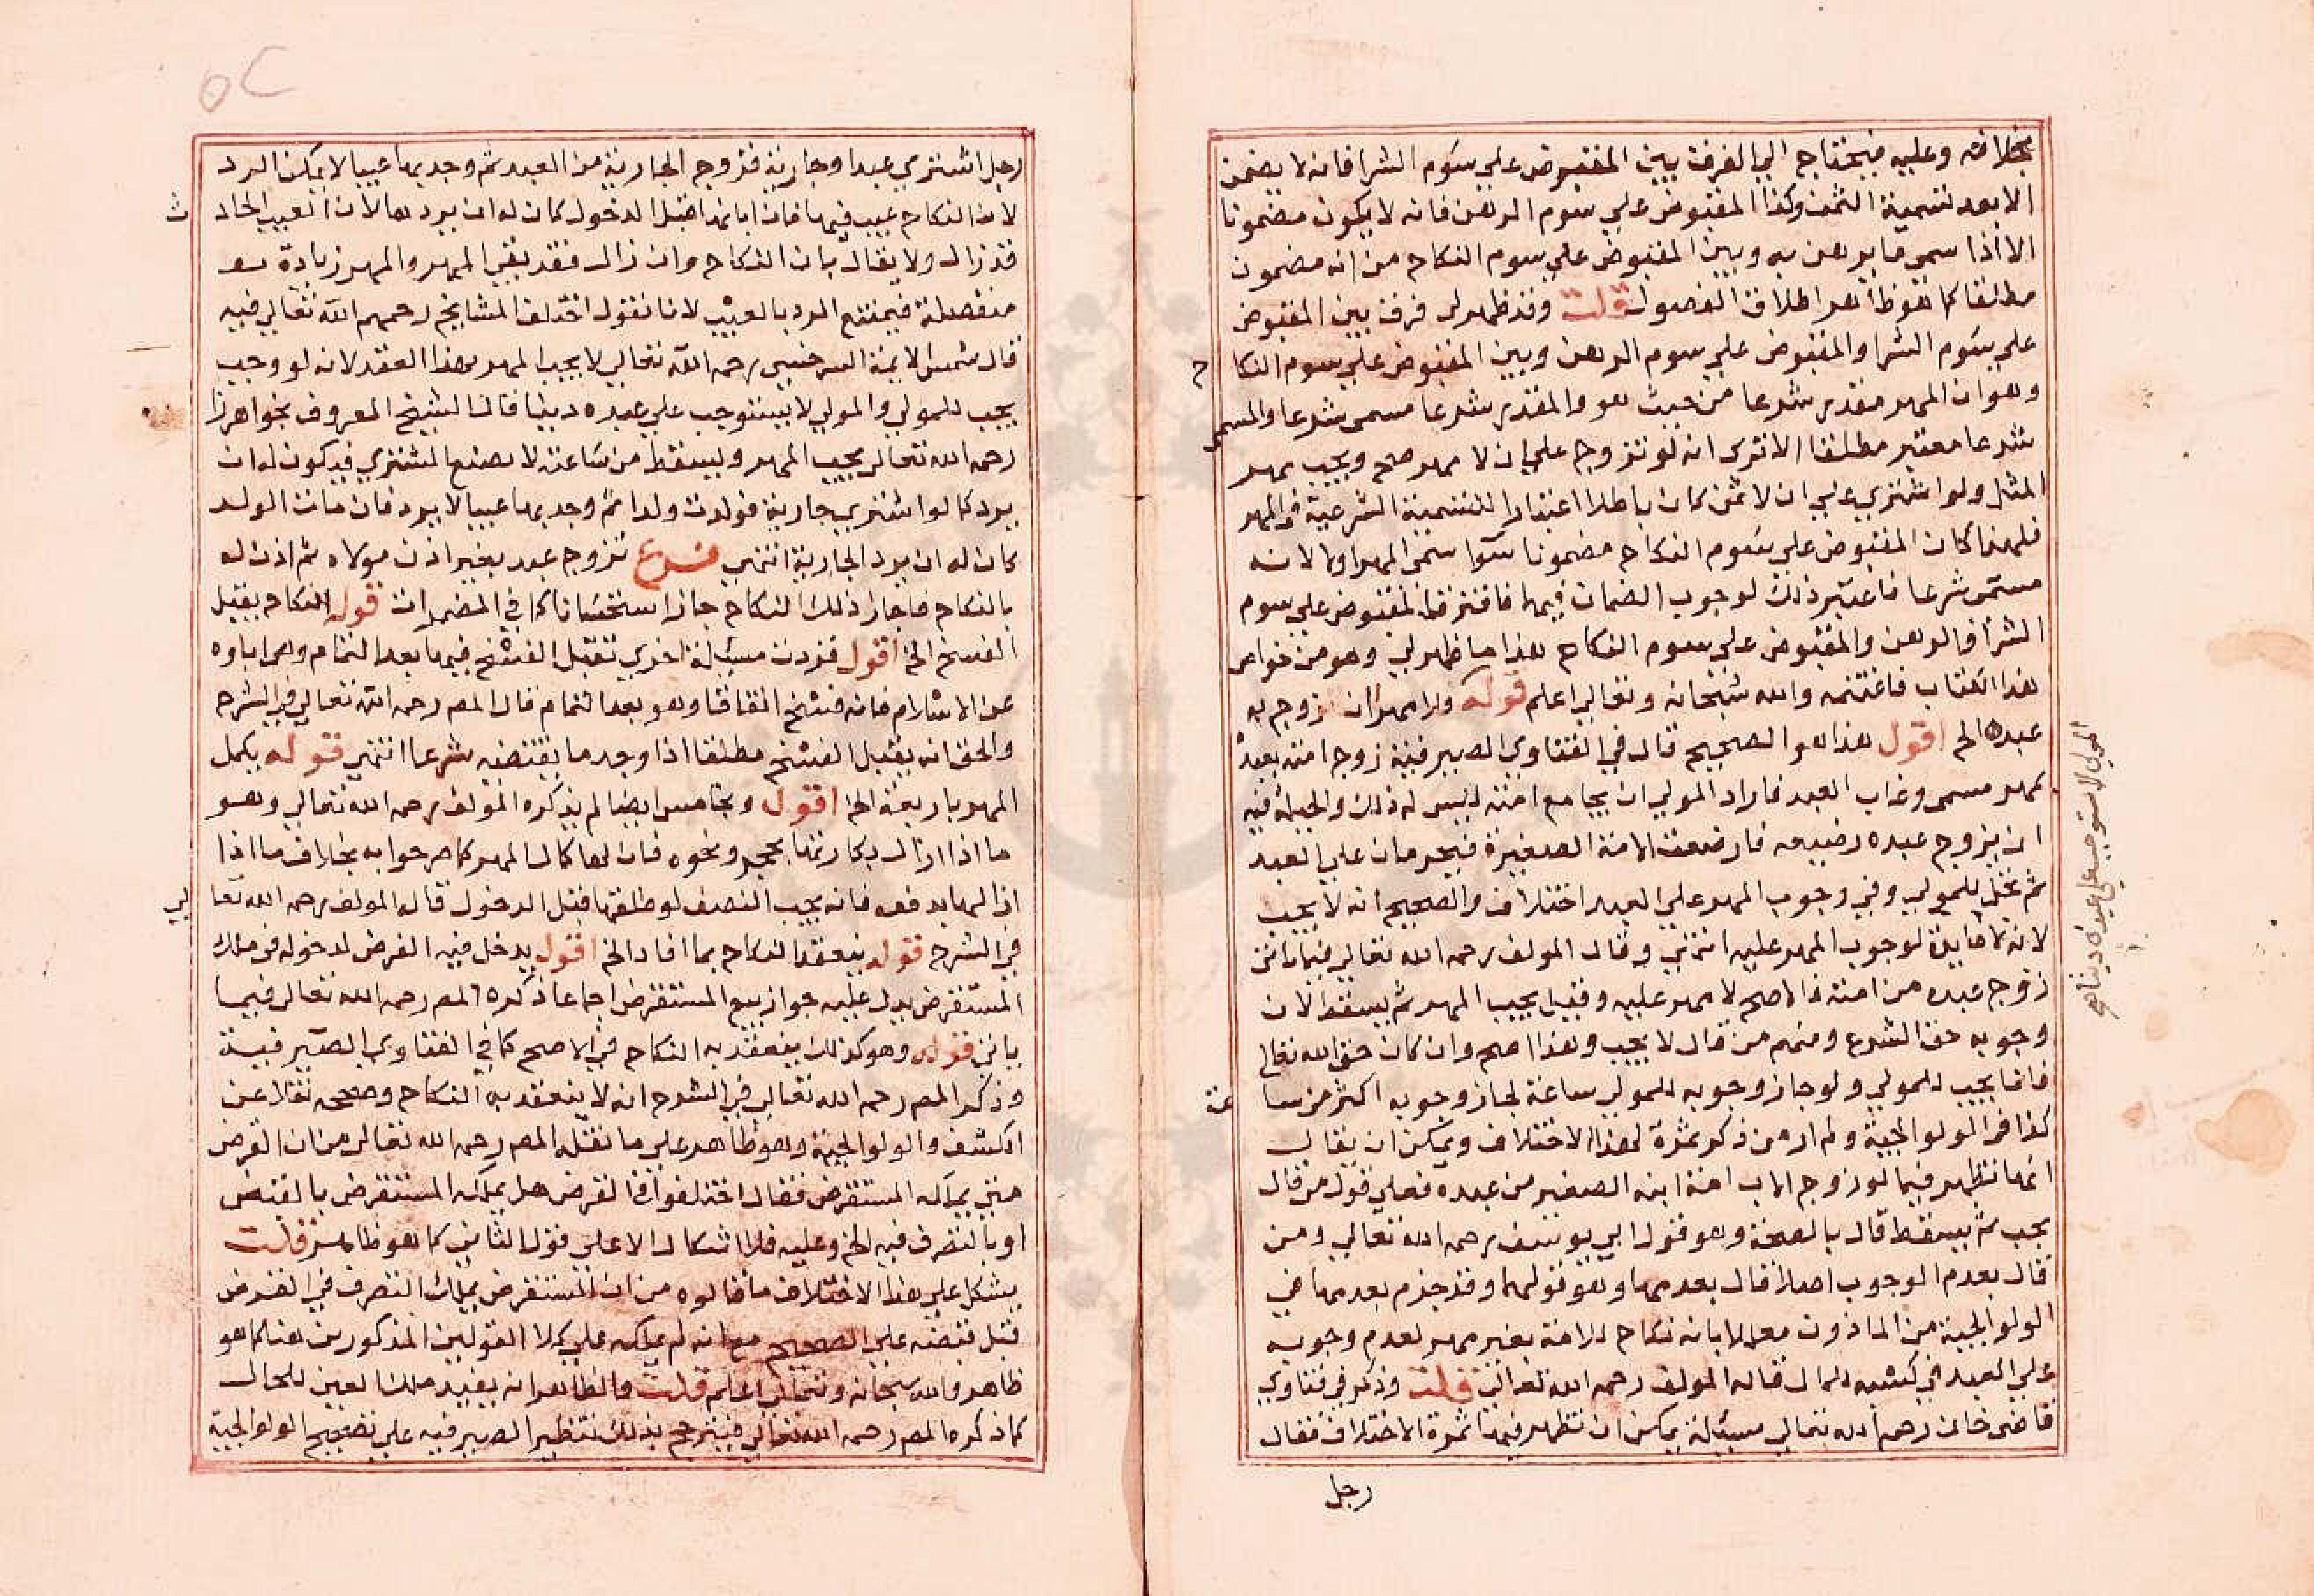 بخلافه وعليه فيحتاج الي الفرق بين المقبوض علي سوم الشرا فانه لا يضمن
الا بعد تسمية الثمن وكذا المقبوض علي سوم الرهن فانه لا يكون مضمونا
الا اذا سمي ما يرهن به وبين المقبوض علي سوم النكاح من انه مضمون
مطلقا كما هو ظاهر اطلاق الفصول قلت وقد ظهر لي فرق بين المقبوض
علي سوم الشرا والمقبوض علي سوم الرهن وبين المقبوض علي سوم النكا ح
وهو ان المهر مقدر شرعا من حيث هو والمقدر شرعا مسمي شرعا والمسمي
شرعا معتبر مطلقا الا تري انه لو تزوج علي ان لا مهر صح ويجب مهر
المثل ولو اشتري علي ان لا ثمن كان باطلا اعتبارا للتسمية الشرعية في المهر
فلهذا كان المقبوض علي سوم النكاح مضمونا سوا سمي المهر او لا لانه
مسمي شرعا فاعتبر ذلك لوجوب الضمان فيها فافترق المقبوض علي سوم
الشرا والرهن والمقبوض علي سوم النكاح هذا ما ظهر لي وهو من خواص
هذا الكتاب فاغتنمه والله سبحانه وتعالي اعلم قوله ولا مهر ان زوج به
عبده الخ اقول هذا هو الصحيح قال في الفتاوي الصيرفية زوج امته بعبد
بمهر مسمي وغاب العبد فاراد المولي ان يجامع امته ليس له ذلك والحيلة فيه
ان يزوج عبده رضيعه فارضعت الامة الصغيرة فيحرمان علي العبد
ثم تحل للمولي وفي وجوب المهر علي العبد اختلاف والصحيح انه لا يجب
لانه لا فايدة لوجوب المهر عليه انتهي وقال المولف رحمه الله تعالي فيما ياتي
زوج عبده من امته فالاصح لا مهر عليه وقيل يجب المهر ثم يسقط لان
وجوبه حق الشرع ومنهم من قال لا يجب وهذا اصح وان كان حق الله تعالي
فانما يجب للمولي ولو جاز وجوبه للمولي ساعة لجاز وجوبه اكثر من سا عة
كذا في الولوالجية ولم ار من ذكر ثمرة لهذا الاختلاف ويمكن ان يقال
انها تظهر فيما لو زوج الاب امة ابنه الصغير من عبده فعلي قول من قال
يجب ثم يسقط قال بالصحة وهو قول ابي يوسف رحمه الله تعالي ومن
قال بعدم الوجوب اصلا قال بعدمها وهو قولهما وقد جزم بعدمها في
الولوالجية من الماذون معللا بانه نكاح للامة بغير مهر لعدم وجوبه
علي العبد في كسبه للحال قاله المولف رحمه الله تعالي قلت وذكر في فتاوي
قاضي خان رحمه الله تعالي مسئلة يمكن ان تظهر فيها ثمرة الاختلاف فقال
رجل
المولي لا يستوجب علي عبده دينا اهـ
رجل اشتري عبدا وجارية فزوج الجارية من العبد ثم وجد بها عيبا لا يمكن الرد
لان النكاح عيب فيها فان ابانها قبل الدخول كان له ان يردها لان العيب الحاد ث
قد زال ولا يقال بان النكاح وان زال فقد بقي المهر والمهر زيادة
منفصلة فيمتنع الرد بالعيب لانا نقول اختلف المشايخ رحمهم الله تعالي فيه
قال شمس الايمة السرخسي رحمه الله تعالي لا يجب المهر بهذا العقد لانه لو وجب
يجب للمولي والمولي لا يستوجب علي عبده دينا قال الشيخ المعروف بخواهرزا
رحمه الله تعالي يجب المهر ويسقط من ساعته لا بصنع المشتري فيكون له ان
يرد كما لو اشتري جارية فولدت ولدا ثم وجد بها عيبا لا يرد فان مات الولد
كان له ان يرد الجارية انتهي فرع تزوج عبد بغير اذن مولاه ثم اذن له
بالنكاح فاجاز ذلك النكاح جاز استحسانا كما في المضمرات قوله النكاح يقبل
الفسخ الخ اقول فزدت مسئلة اخري تقبل الفسخ فيها بعد التمام وهي اباوه
عن الاسلام فانه فسخ اتفاقا وهو بعد التمام قال المص رحمه الله تعالي في الشرح
والحق انه يقبل الفسخ مطلقا اذا وجد ما يقتضيه شرعا انتهي قوله يكمل
المهر باربعة الخ اقول وبخامس ايضا لم يذكره المولف رحمه الله تعالي وهو
ما اذا ازال بكارتها بحجر ونحوه فان لها كمال المهر كما صرحوا به بخلاف ما اذا
ازالها بدفعه فانه يجب النصف لو طلقها قبل الدخول قاله المولف رحمه الله تعا لي
في الشرح قوله ينعقد النكاح بما افاد الخ اقول يدخل فيه القرض لدخوله في ملك
المستقرض يدل عليه جواز بيع المستقرض اجماعا ذكره المص رحمه الله تعالي فيما
ياتي قوله وهو كذلك ينعقد به النكاح في الاصح كما في الفتاوي الصيرفية
وذكر المص رحمه الله تعالي في الشرح انه لا ينعقد به النكاح وصححه نقلا عن
الكشف والولوالجية وهو ظاهر علي ما نقله المص رحمه الله تعالي من ان القرض
متي يملكه المستقرض فقال اختلفوا في القرض هل يملكه المستقرض بالقبض
او بالتصرف فيه الخ وعليه فلا اشكال الا علي قول الثاني كما هو ظاهر قلت
يشكل علي هذا الاختلاف ما قالوه من ان المستقرض يملك التصرف في القرض
قبل قبضه علي الصحيح مع انه لم يملكه علي كلا القولين المذكورين هنا كما هو
ظاهر والله سبحانه وتعالي اعلم قلت والظاهر انه يفيد ملك العين للحال
كما ذكره المص رحمه الله تعالي فيترجح بذلك تنظير الصيرفيه علي تصحيح الولوالجية